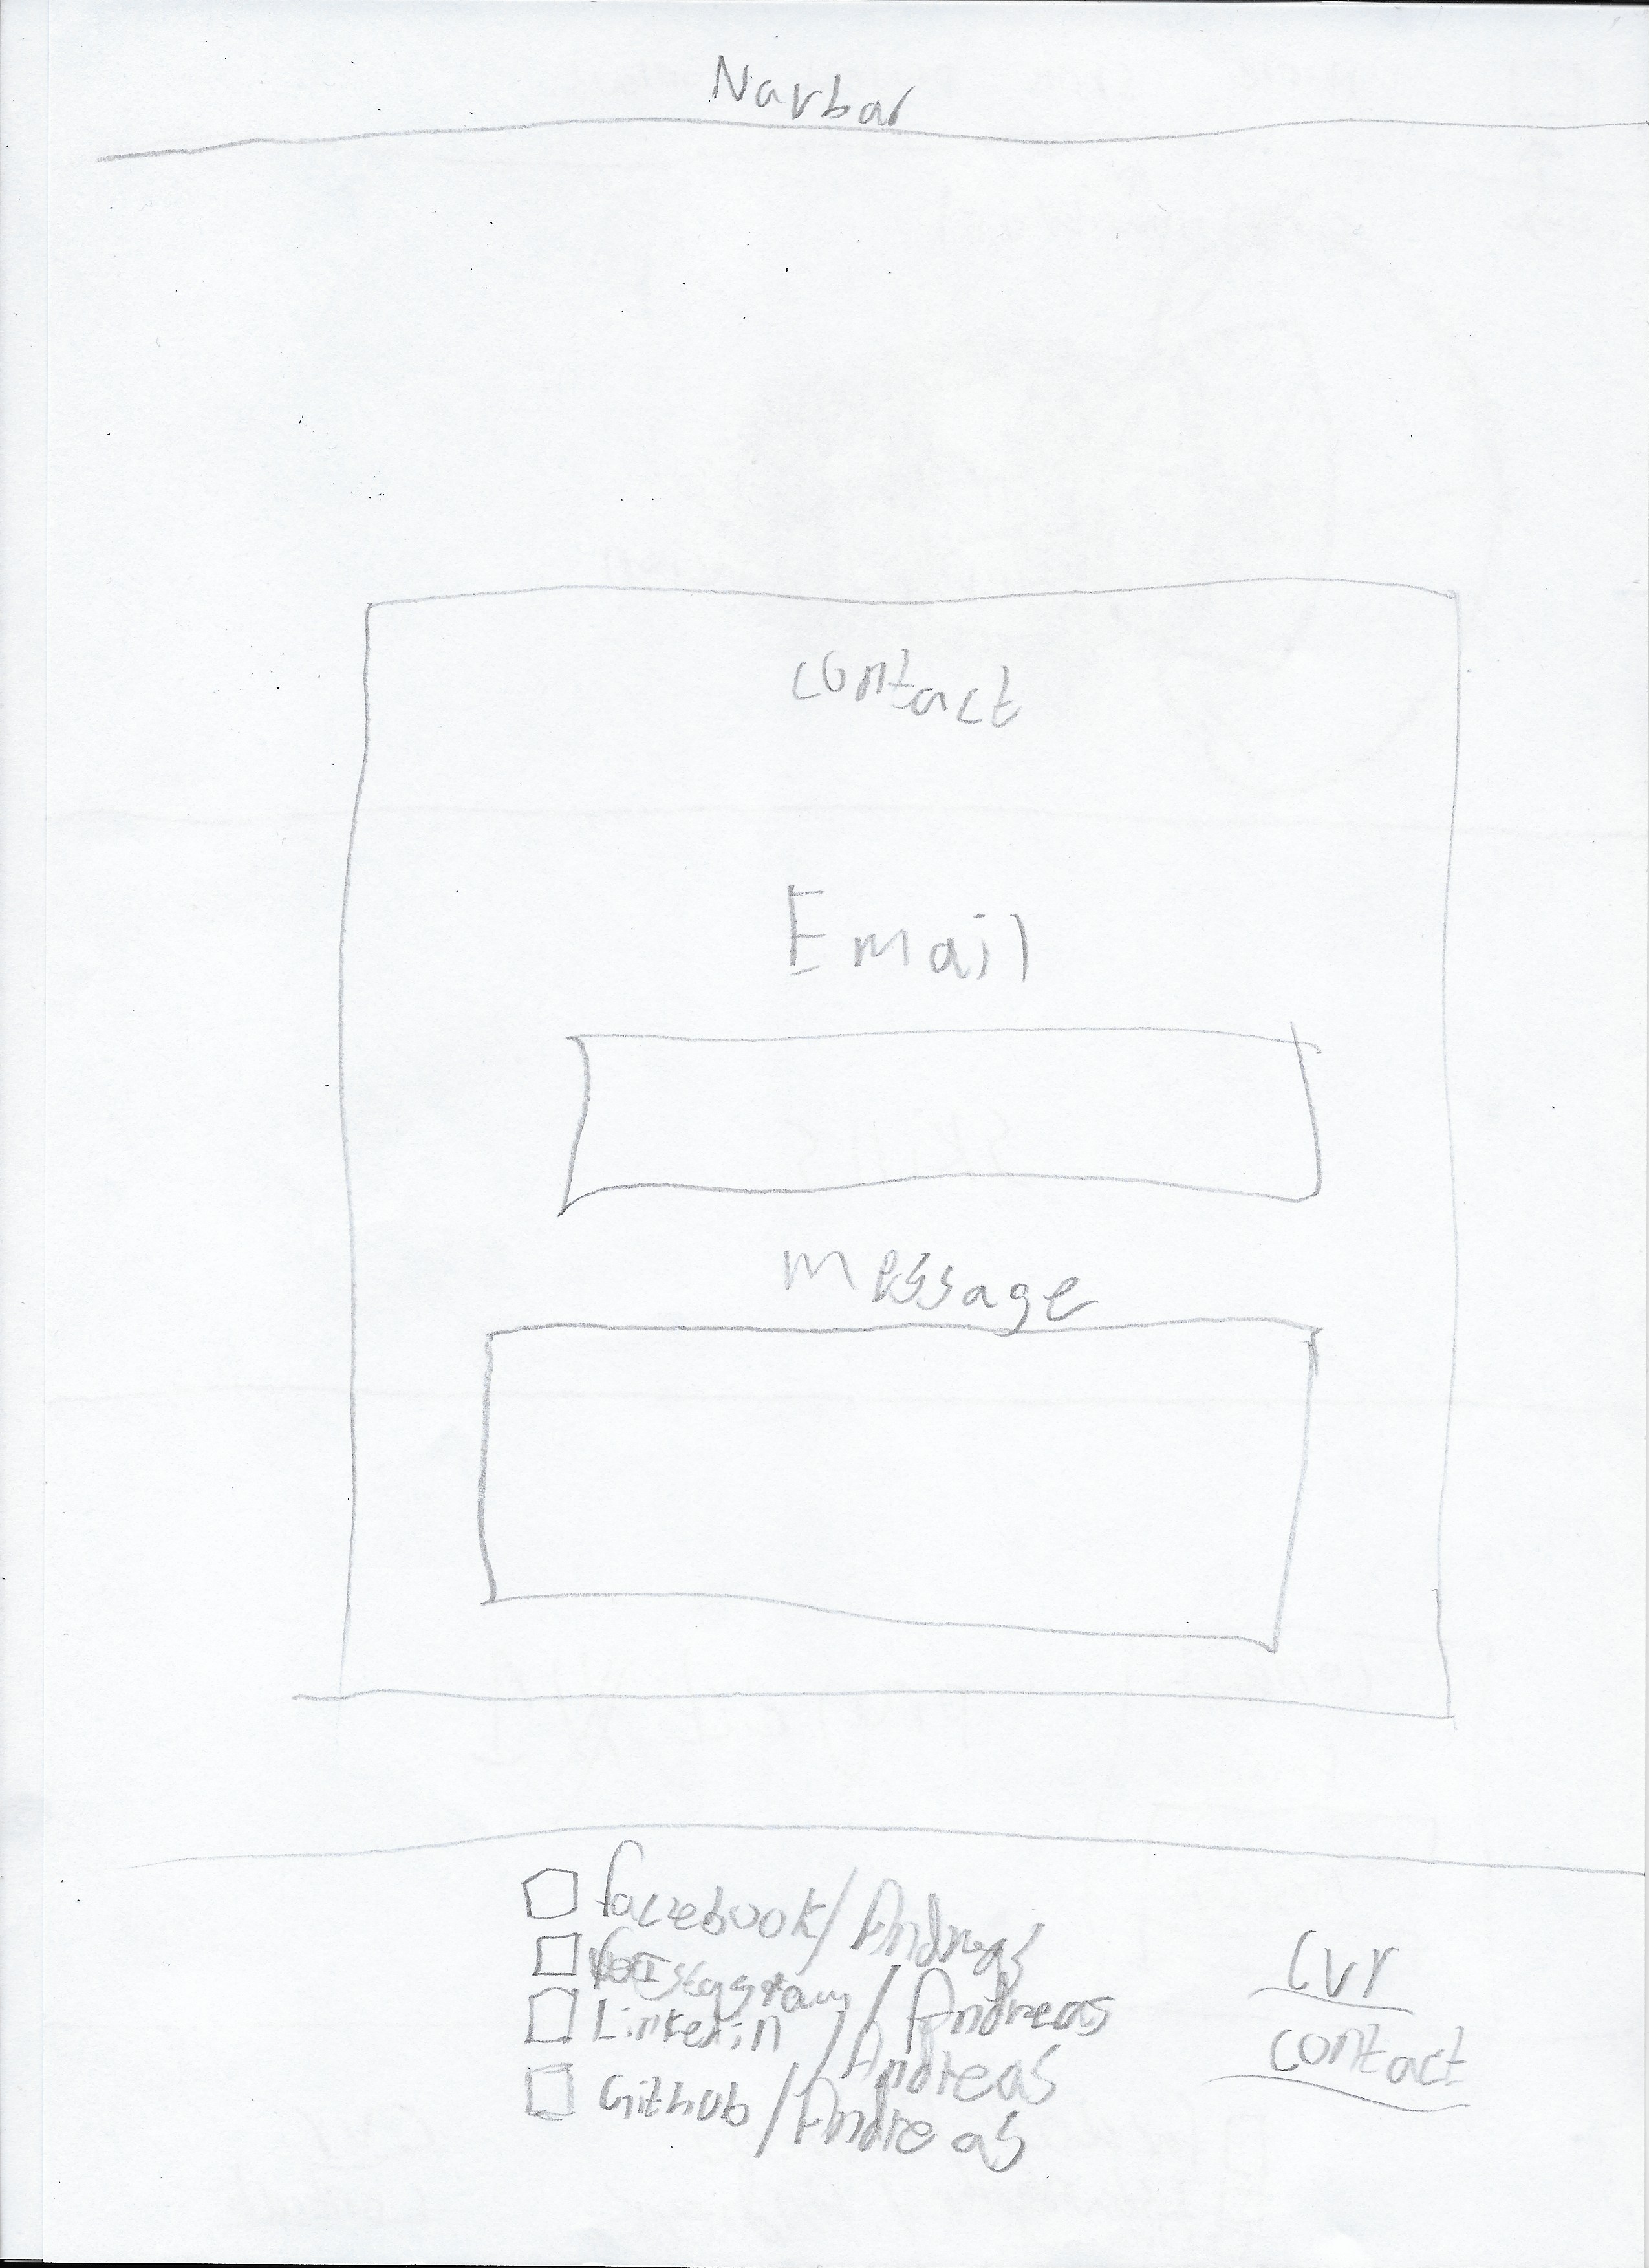 Navbar
contact
Email
message
facebook/Andreas
/Andreas
Linkedin/Andreas
Github/Andreas
CVr
contact